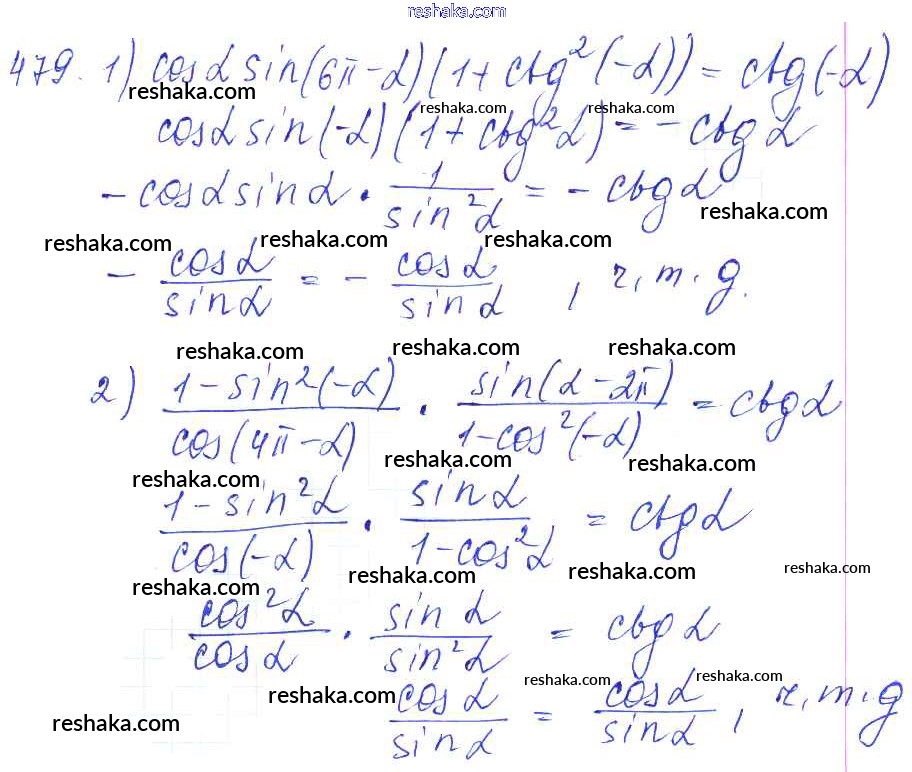 reshaka.com
479. 1) cosα sin(6π-α)(1+ctg²(-α)) = ctg(-α)
reshaka.com reshaka.com reshaka.com
cosα sin(-α)(1+ctg²α) = -ctgα
- cosα sinα · 1/sin²α = - ctgα
reshaka.com
reshaka.com reshaka.com reshaka.com
- cosα/sinα = - cosα/sinα , ч.т.д.
reshaka.com reshaka.com reshaka.com
2) (1-sin²(-α))/cos(4π-α) · sin(α-2π)/(1-cos²(-α)) = ctgα
reshaka.com reshaka.com reshaka.com
(1-sin²α)/cos(-α) · sinα/(1-cos²α) = ctgα
reshaka.com reshaka.com reshaka.com reshaka.com
cos²α/cosα · sinα/sin²α = ctgα
reshaka.com reshaka.com reshaka.com reshaka.com
cosα/sinα = cosα/sinα , ч.т.д